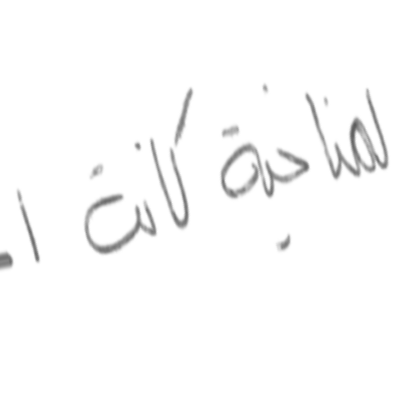 لمناخية كانت ا